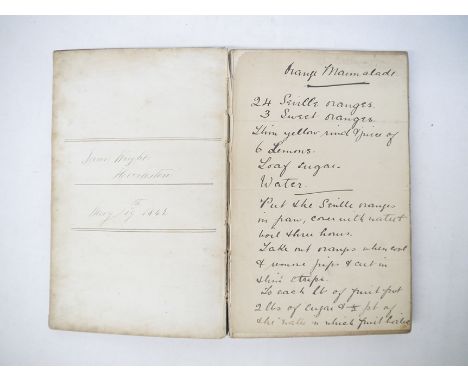 Jane Wright
May 19th 1846
Orange Marmalade
24 Seville oranges
3 Sweet oranges
Thin yellow rind & juice of
6 Lemons.
Loaf sugar.
Water.
Put the Seville oranges
in pan, cover with water &
boil three hours.
Take out oranges when cool
& remove pips & cut in
thin strips.
To each lb of fruit put
2 lbs of sugar & pt of
the water in which fruit boiled